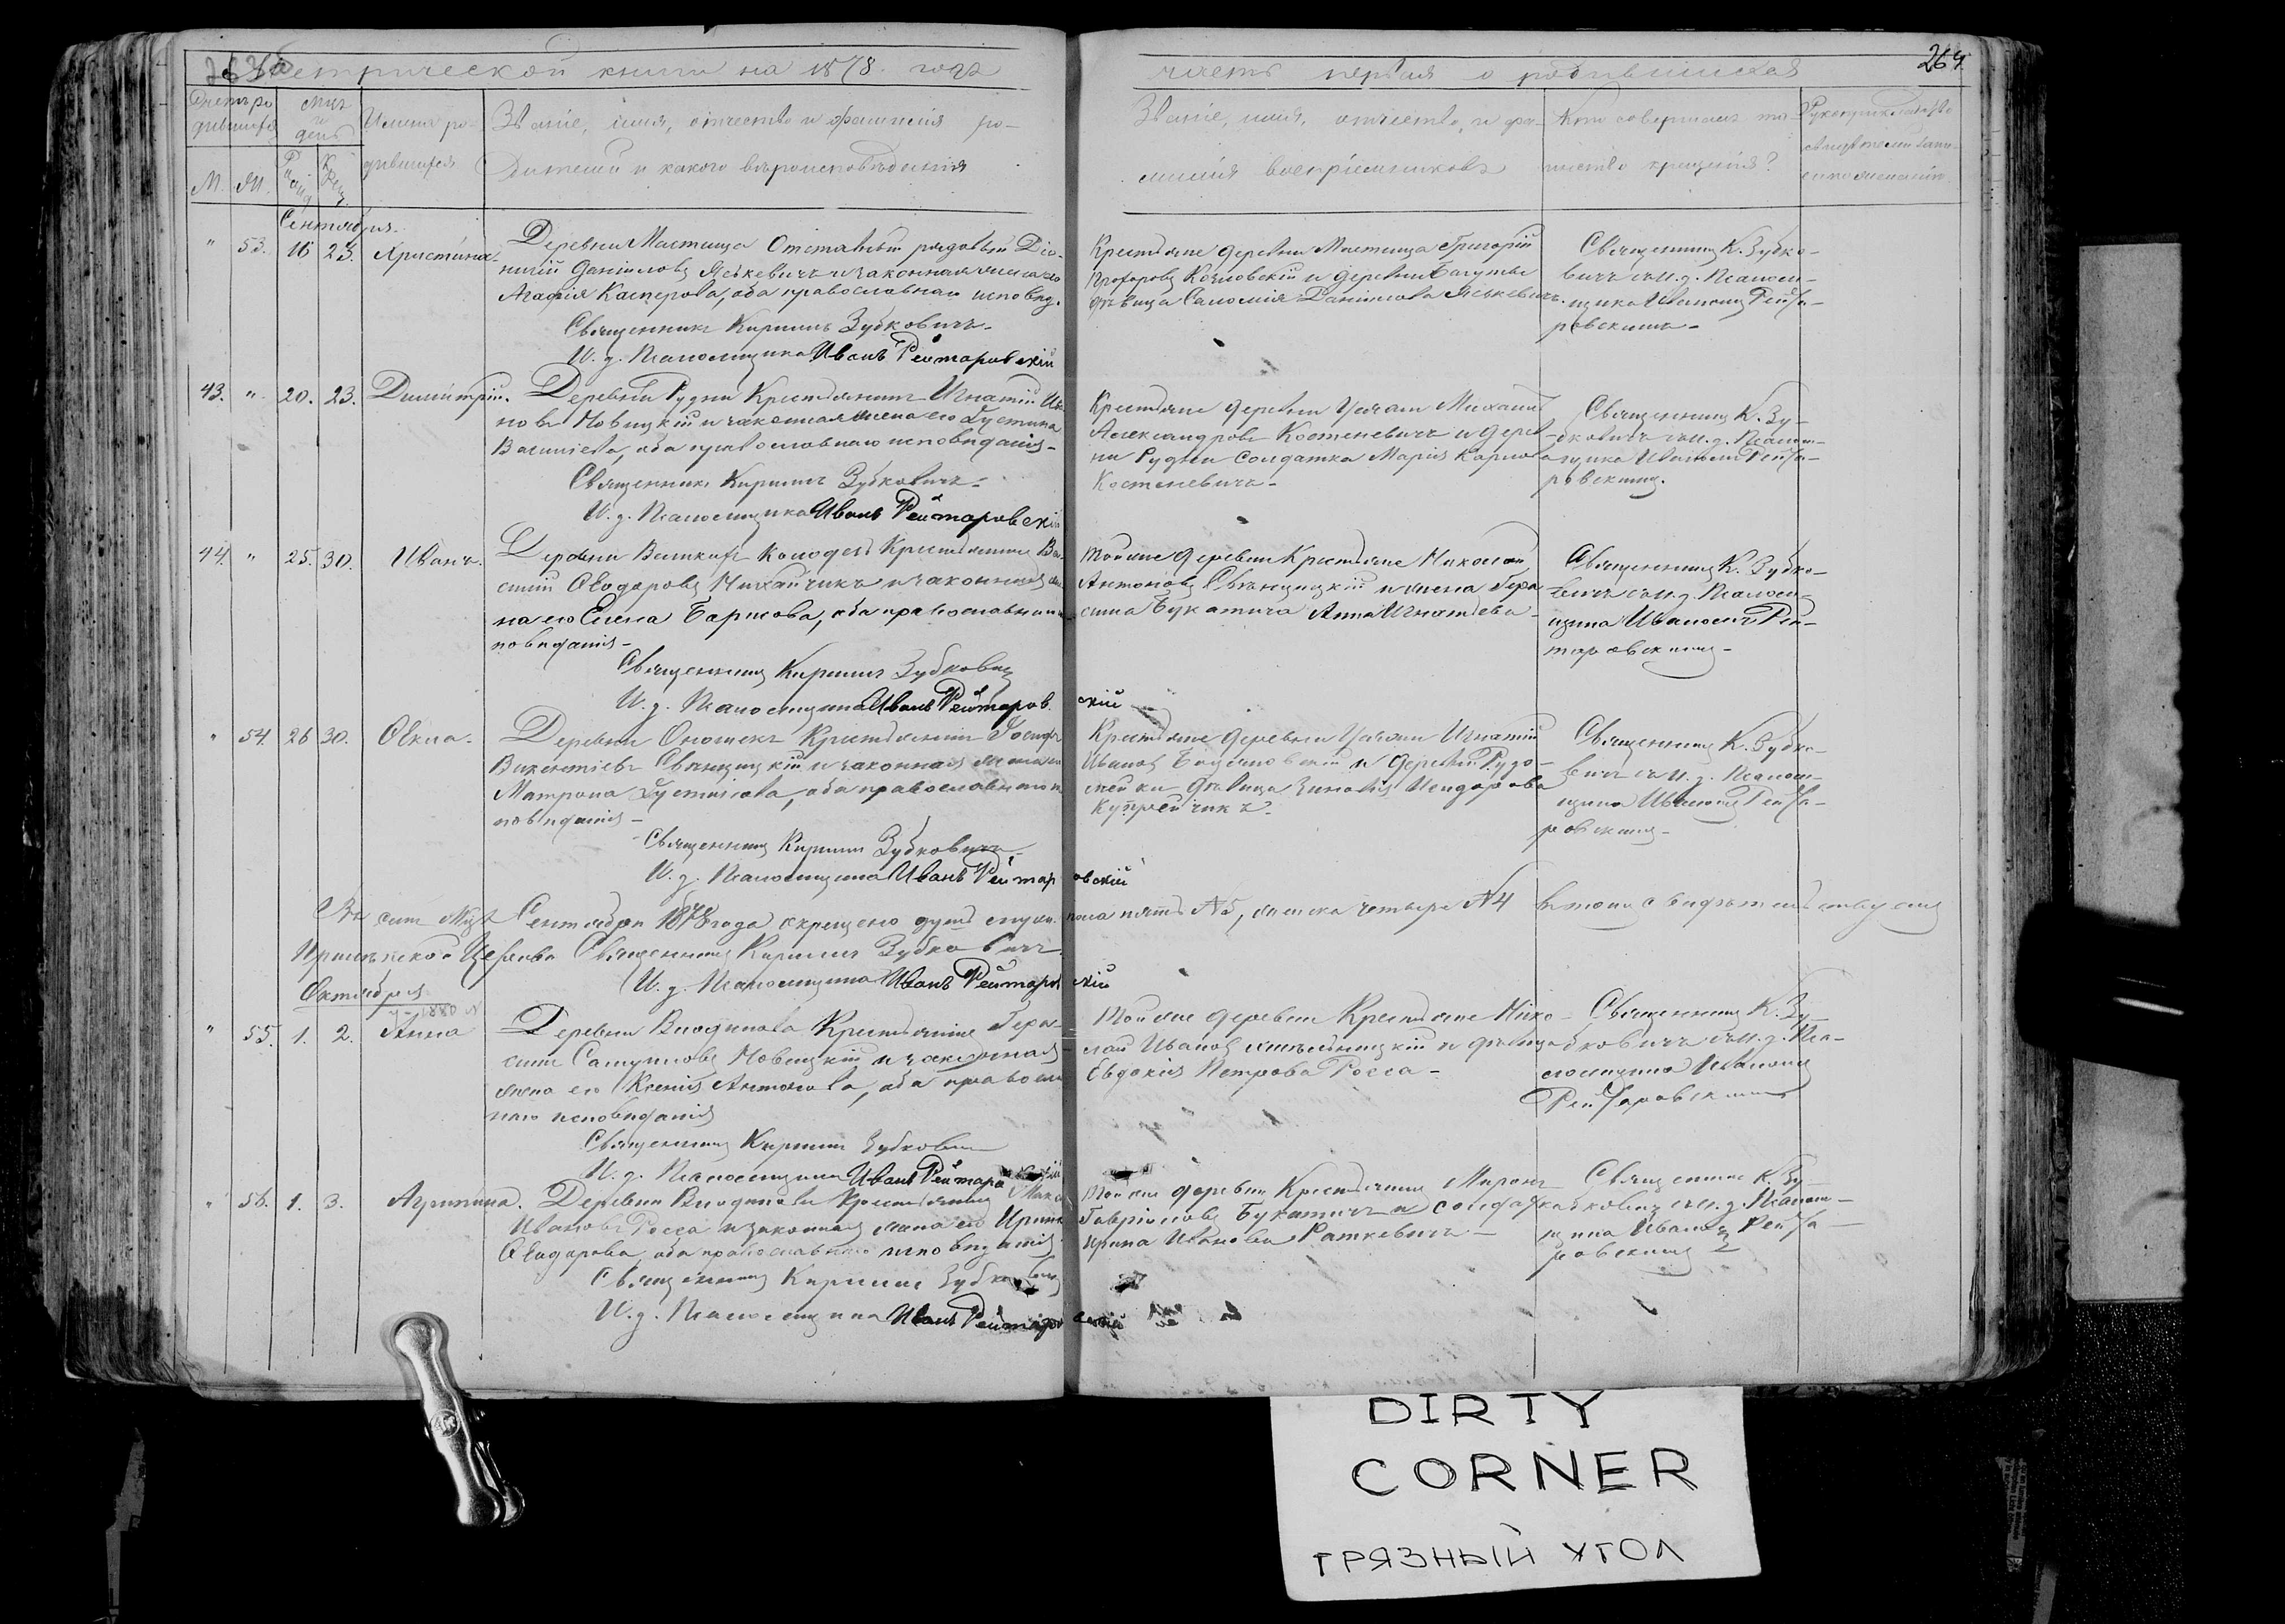 Метрической книги на 1878 года
часть первая о родившихся
264
Счетъ ро
дившихся
М. Ж.
Мцъ
и
день
Имена ро-
дившихся
Званіе, имя, отчество и фамилія ро-
дителей и какого вѣроисповѣданія
Званіе, имя, отчество, и фа-
милія воспріемниковъ
Кто совершалъ та-
инство крещенія?
Сентября.
" 53. 16 23. Христина
Деревни Мостища Отставный рядовый Діо-
нисій Даніиловъ Яськевичъ и законная жена его
Агафія Касперова, оба православнаго исповѣд.
Священникъ Кириллъ Зубковичъ
И. д. Псаломщика Иванъ Рейтаровскій
Крестьяне деревни Мостища Григорій
Прохоровъ Козловскій и деревни
дѣвица Саломія Даніилова Яськевичъ.
Священникъ К. Зубко-
вичъ съ и. д. Псалом-
щика Иваномъ Рейта-
ровскимъ
43. " 20. 23. Димитрій.
Деревни Рудни Крестьянинъ Игнатій Ива
новъ Новицкій и законная жена его Іустина
Василіева, оба православнаго исповѣданія
Священникъ Кириллъ Зубковичъ
И. д. Псаломщика Иванъ Рейтаровскій
Крестьяне деревни Михаилъ
Александровъ Костеневичъ и дерев-
ни Рудни Солдатка Марія Карпова
Костеневичъ
Священникъ К. Зу-
бковичъ съ и. д. Псалом-
щика Иваномъ Рейта-
ровскимъ.
44. " 25. 30. Иванъ.
Деревни Колодезь Крестьянинъ Ва-
силій Ѳеодоровъ Михайчикъ и законная же
на его Елена Карпова, оба православнаго ис
повѣданія
Священникъ Кириллъ Зубковичъ
И. д. Псаломщика Иванъ Рейтаровскій
Той же деревни Крестьяне Николай
Антоновъ Свѣнцицкій и жена Гера
сима Букатича Анна Игнатіева
Священникъ К. Зубко-
вичъ съ и. д. Псалом-
щика Иваномъ Рей-
таровскимъ
" 54. 26 30. Ѳекла
Деревни Крестьянинъ Іосифъ
Викентіевъ Свѣнцицкій и законная жена его
Матрона Іустинова, оба православнаго ис
повѣданія
Священникъ Кириллъ Зубковичъ
И. д. Псаломщика Иванъ Рейтаровскій
Крестьяне деревни Игнатій
Ивановъ и деревни Рудо-
мейки дѣвица Зиновія Исидорова
Купрейчикъ
Священникъ К. Зубко-
вичъ съ и. д. Псалом-
щика Иваномъ Рейта-
ровскимъ
Въ семъ Мцѣ Сентябрѣ 1878 года крещено душъ мужск. пола пять №5, женска четыре №4 въ томъ свидѣтельствуемъ
Церкви Священникъ Кириллъ Зубковичъ
И. д. Псаломщика Иванъ Рейтаровскій
Октября
" 55. 1. 2. Анна
Деревни Крестьянинъ Гера-
симъ Новицкій и законная
жена его Ксенія Антонова, оба православ
наго исповѣданія
Священникъ Кириллъ Зубковичъ
И. д. Псаломщика Иванъ Рейтаровскій
Той же деревни Крестьяне Нико-
лай Ивановъ и дѣвица
Евдокія Петрова Росса
Священникъ К. Зу-
бковичъ съ и. д. Пса-
ломщика Иваномъ
Рейтаровскимъ
" 56. 1. 3. Агрипина.
Деревни Крестьянинъ
Ивановъ Росса и законная жена его Ирина
Ѳеодорова, оба православнаго исповѣданія
Священникъ Кириллъ Зубковичъ
И. д. Псаломщика Иванъ Рейтаровскій
Той же деревни Крестьянинъ Миронъ
Гавріиловъ Букатичъ и солдатка
Ирина Иванова Раткевичъ
Священникъ К. Зу-
бковичъ съ и. д. Псалом-
щика Иваномъ Рейта-
ровскимъ
DIRTY
CORNER
ГРЯЗНЫЙ УГОЛ